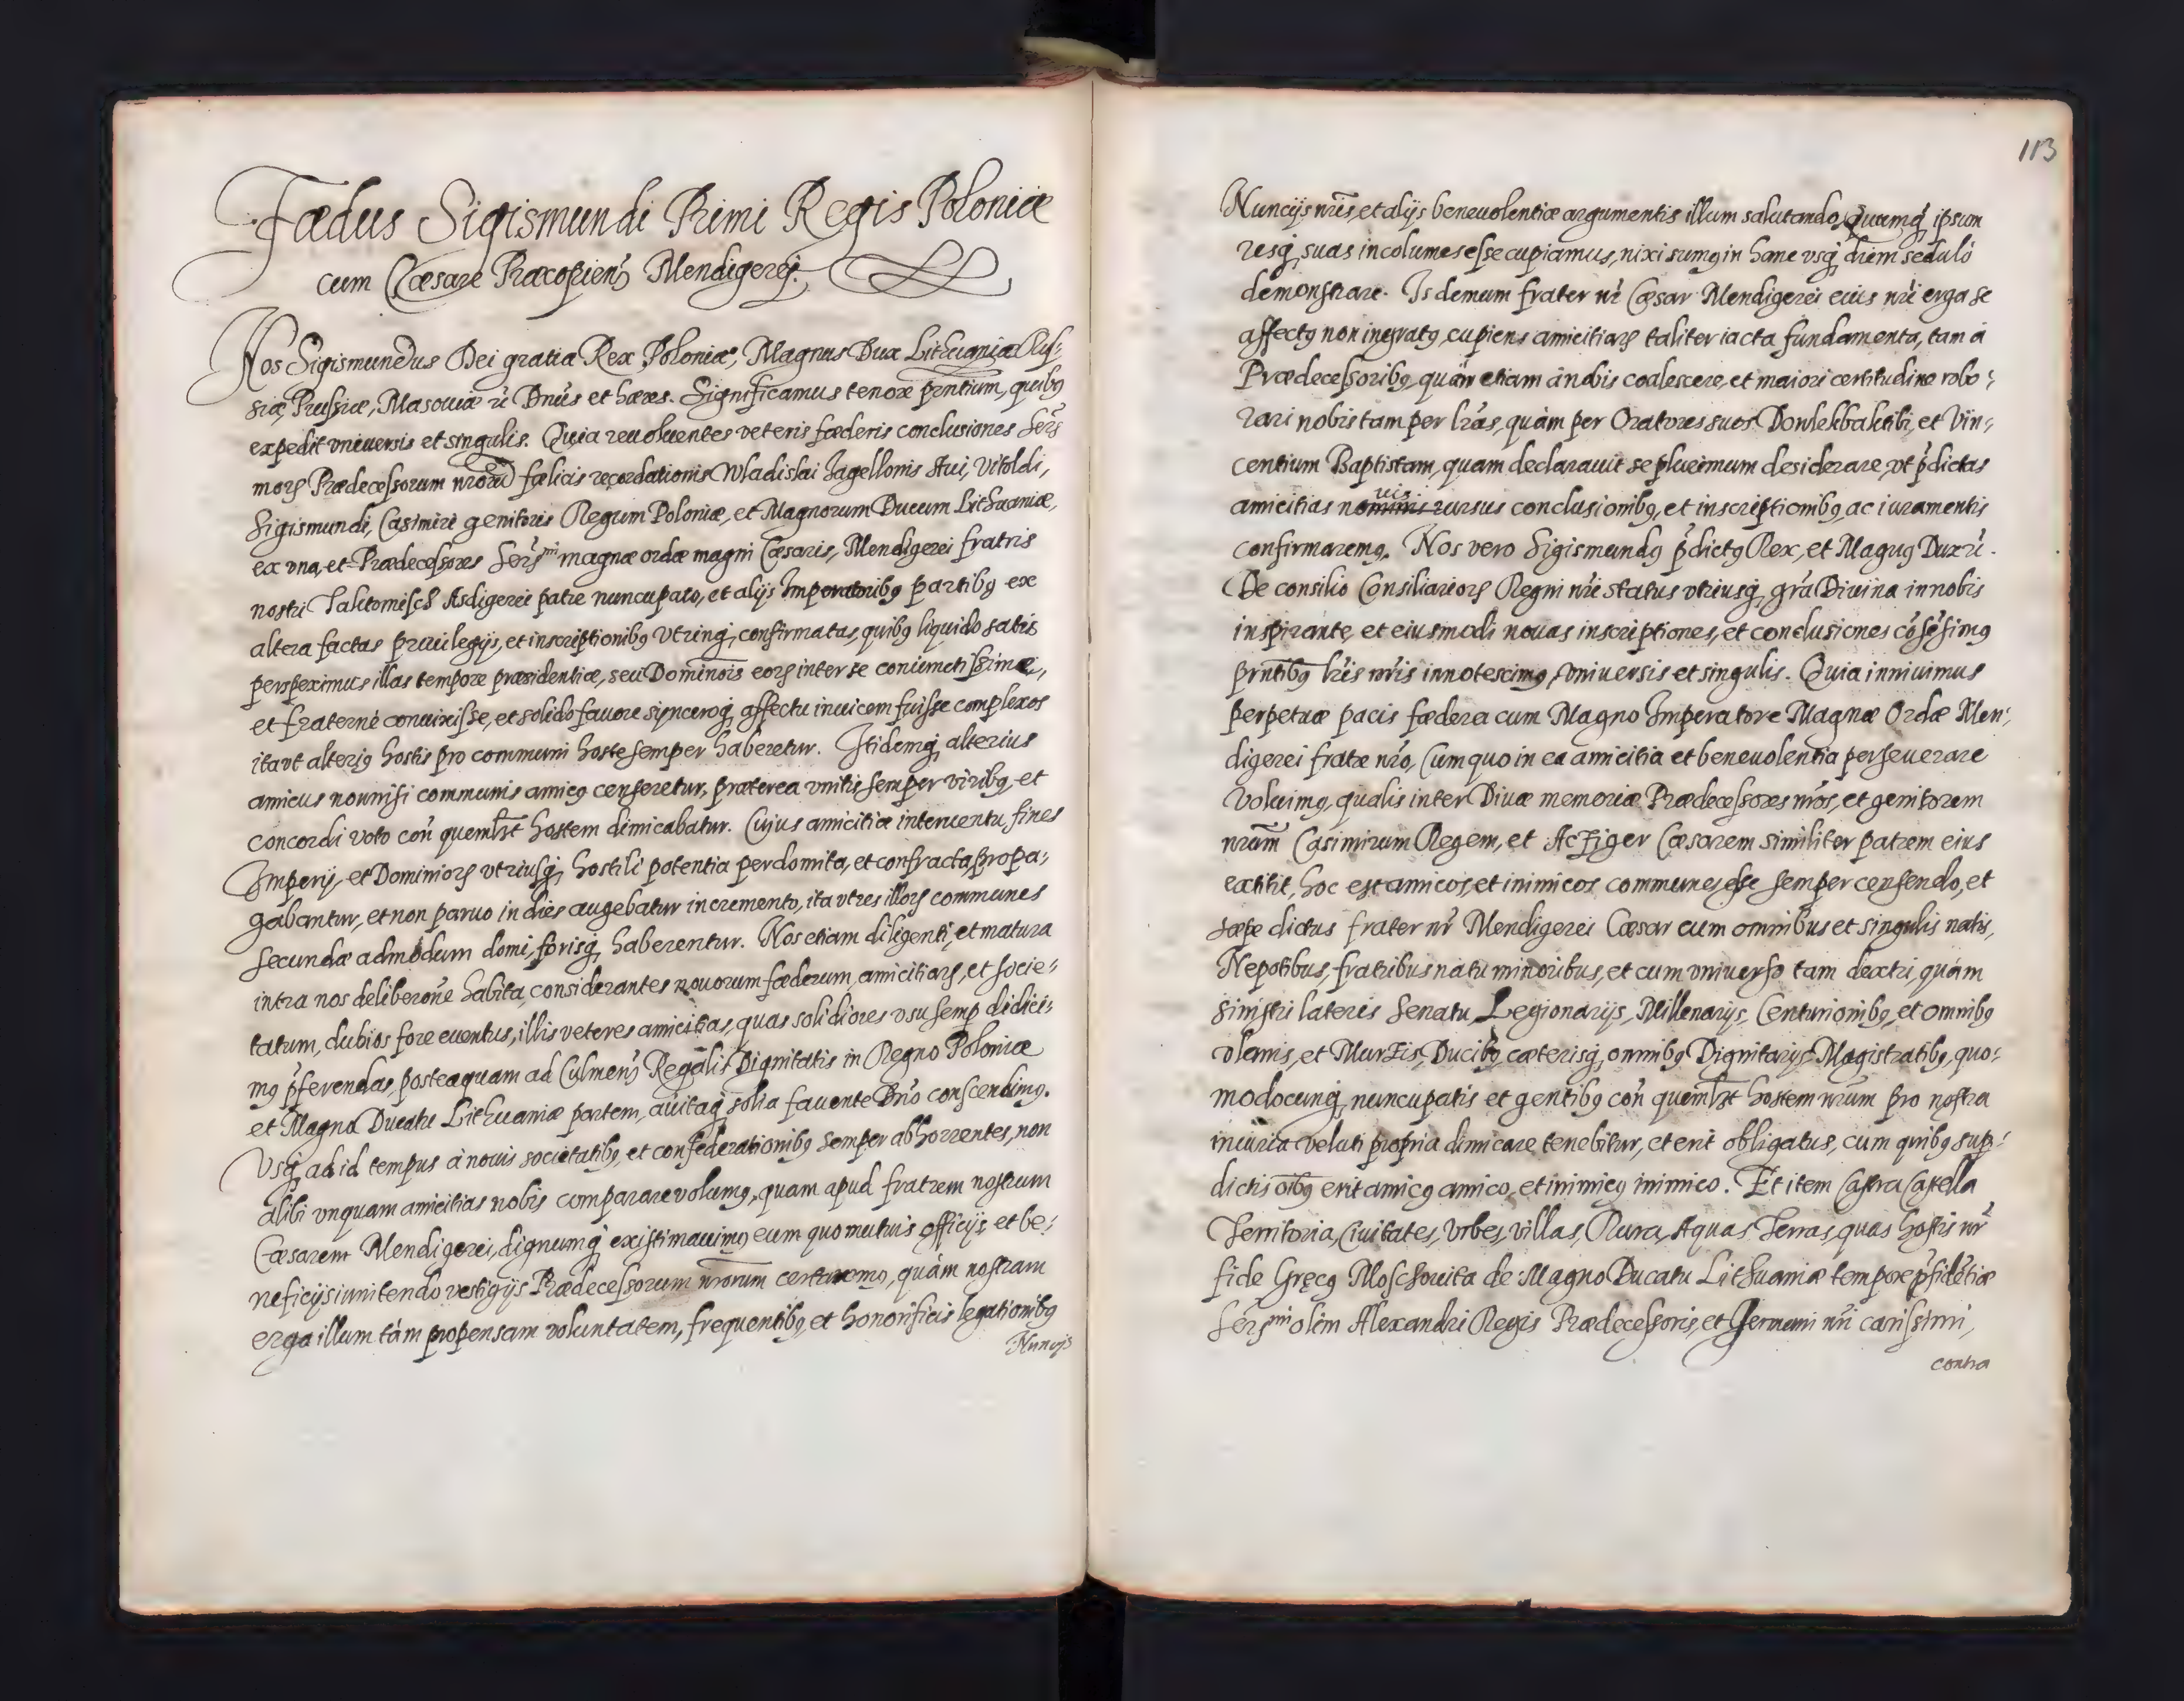 Fœdus Sigismundi Primi Regis Poloniæ
cum Cæsare Præcopien̄ Mendigerej.
Nos Sigismundus Dei gratia Rex Poloniæ, Magnus Dux Lithuaniæ Rus-
siæ, Prussiæ, Masouiæ r̄ Dn̄us et hæres. Significamus tenore p̄ntium, quibꝯ
expedit vniuersis et singulis. Quia reuoluentes veteris fœderis conclusiones Ser̄s
moꝝ Prædecessorum nr̄orū fœlicis recordationis Wladislai Jagellonis Aui, Vitoldi,
Sigismundi, Casimiri genitoris Regum Poloniæ, et Magnorum Ducum Lithuaniæ,
ex vna, et Prædecessores Ser̄s^mi magnæ ordæ magni Cæsaris, Mendigerei fratris
nostri Tahtomisch Asdigerei patre nuncupato, et alijs Imperatoribꝯ partibꝯ ex
altera factas priuilegijs, et inscriptionibꝯ vtrinqꝫ confirmatas, quibꝯ liquido satis
perspeximus illas tempore præsidentiæ, seu Dominōis eoꝝ inter se coniunctissimæ,
et fraternè conuixisse, et solido fauore synceroqꝫ affectu inuicem fuisse complexos
ita vt alteriꝯ hostis pro communi hoste semper haberetur. Itidemqꝫ alterius
amicus nonnisi communis amicꝯ censeretur, præterea vnitis semper viribꝯ et
concordi voto con̄ quemlꝫt hostem dimicabatur. Cujus amicitiæ interuentu, fines
Imperij, et Dominioꝝ vtriusqꝫ hostili potentia perdomita, et confracta, propa-
gabantur, et non paruo in dies augebatur incremento, ita vt res illoꝝ communes
secundæ admodum domi, forisqꝫ haberentur. Nos etiam diligenti, et matura
intra nos deliberōne habita, considerantes nouorum fœderum, amicitiaꝝ, et socie-
tatum, dubios fore euentus, illis veteres amicitias, quas solidiores vsu semp didici-
mꝯ p̄ferendas, posteaquam ad Culmen̄ Regalis Dignitatis in Regno Poloniæ
et Magno Ducatu Lithuaniæ partem, auitaqꝫ solia fauente Dn̄o conscendimꝯ.
Vsqꝫ ad id tempus à nouis societatibꝯ, et confederationibꝯ semper abhorrentes, non
alibi vnquam amicitias nobis comparare volumꝯ, quam apud fratrem nostrum
Cæsarem Mendigerei, dignumqꝫ existimauimꝯ eum quo mutuis officijs, et be-
neficijs innitendo vestigijs Prædecessorum nr̄orum certaremꝯ, quàm nostram
erga illum tàm propensam voluntatem, frequentibꝯ, et honorificis legationibꝯ
Nuncijs
113
Nuncijs nr̄is, et alijs beneuolentiæ argumentis illum salutando, Quemqꝫ ipsum
resqꝫ suas incolumes esse cupiamus, nixi sumꝯ in hanc vsqꝫ diem sedulò
demonstrare. Is demum frater nr̄ Cæsar Mendigerei eius nr̄i erga se
affectꝯ non ingratꝯ, cupiens amicitiaꝝ taliter iacta fundamenta, tam à
Prædecessoribꝯ, quàm etiam à nobis coalescere, et maiori certitudine robo-
rari nobis tam per lr̄as, quàm per Oratores suos Dowlekbaktibi, et Vin-
centium Baptistam, quam declarauit se plurimum desiderare, vt p̄dictas
amicitias nouis rursus conclusionibꝯ, et inscriptionibꝯ, ac iuramentis
confirmaremꝯ. Nos vero Sigismundꝯ p̄dictꝯ Rex, et Magnꝯ Dux r̄.
De consilio Consiliarioꝝ Regni nr̄i status vtriusqꝫ gr̄a Diuina in nobis
inspirante, et eiusmodi nouas inscriptiones, et conclusiones cōsēsimꝯ
pn̄tibꝯ lr̄is nr̄is innotescimꝯ, vniuersis et singulis. Quia inniuimus
perpetuæ pacis fœdera cum Magno Imperatore Magnæ Ordæ Men-
digerei fratre nr̄o, Cum quo in ea amicitia et beneuolentia perseuerare
volumꝯ, qualis inter Diuæ memoriæ Prædecessores nr̄os, et genitorem
nr̄um Casimirum Regem, et Actziger Cæsarem similiter patrem eius
extitit, hoc est amicos, et inimicos communes, esse semper censendo, et
sæpe dictus frater nr̄ Mendigerei Cæsar cum omnibus et singulis natis,
Nepotibus, fratribus natu minoribus, et cum vniuerso tam dextri, quàm
sinistri lateris Senatu, Legionarijs, Millenarijs, Centurionibꝯ, et omnibꝯ
vlanis, et Murzis, Ducibꝯ, cæterisqꝫ omnibꝯ Dignitarijs, Magistratibꝯ, quo-
modocunqꝫ nuncupatis et gentibꝯ con̄ quemlꝫt hostem nr̄um pro nostra
iniuria veluti propria dimicare tenebitur, et erit obligatus, cum quibꝯ sup-
dictis oībꝯ erit amicꝯ amico, et inimicꝯ inimico. Et item Castra Castella
Territoria, Ciuitates, Vrbes, villas, Rura, Aquas Terras, quas hostis nr̄
fide Gręcꝯ Moschouita de Magno Ducatu Lithuaniæ tempore p̄sidētiæ
Ser̄s^mi olim Alexandri Regis Prædecessoris, et Germani nr̄i carissimi,
contra